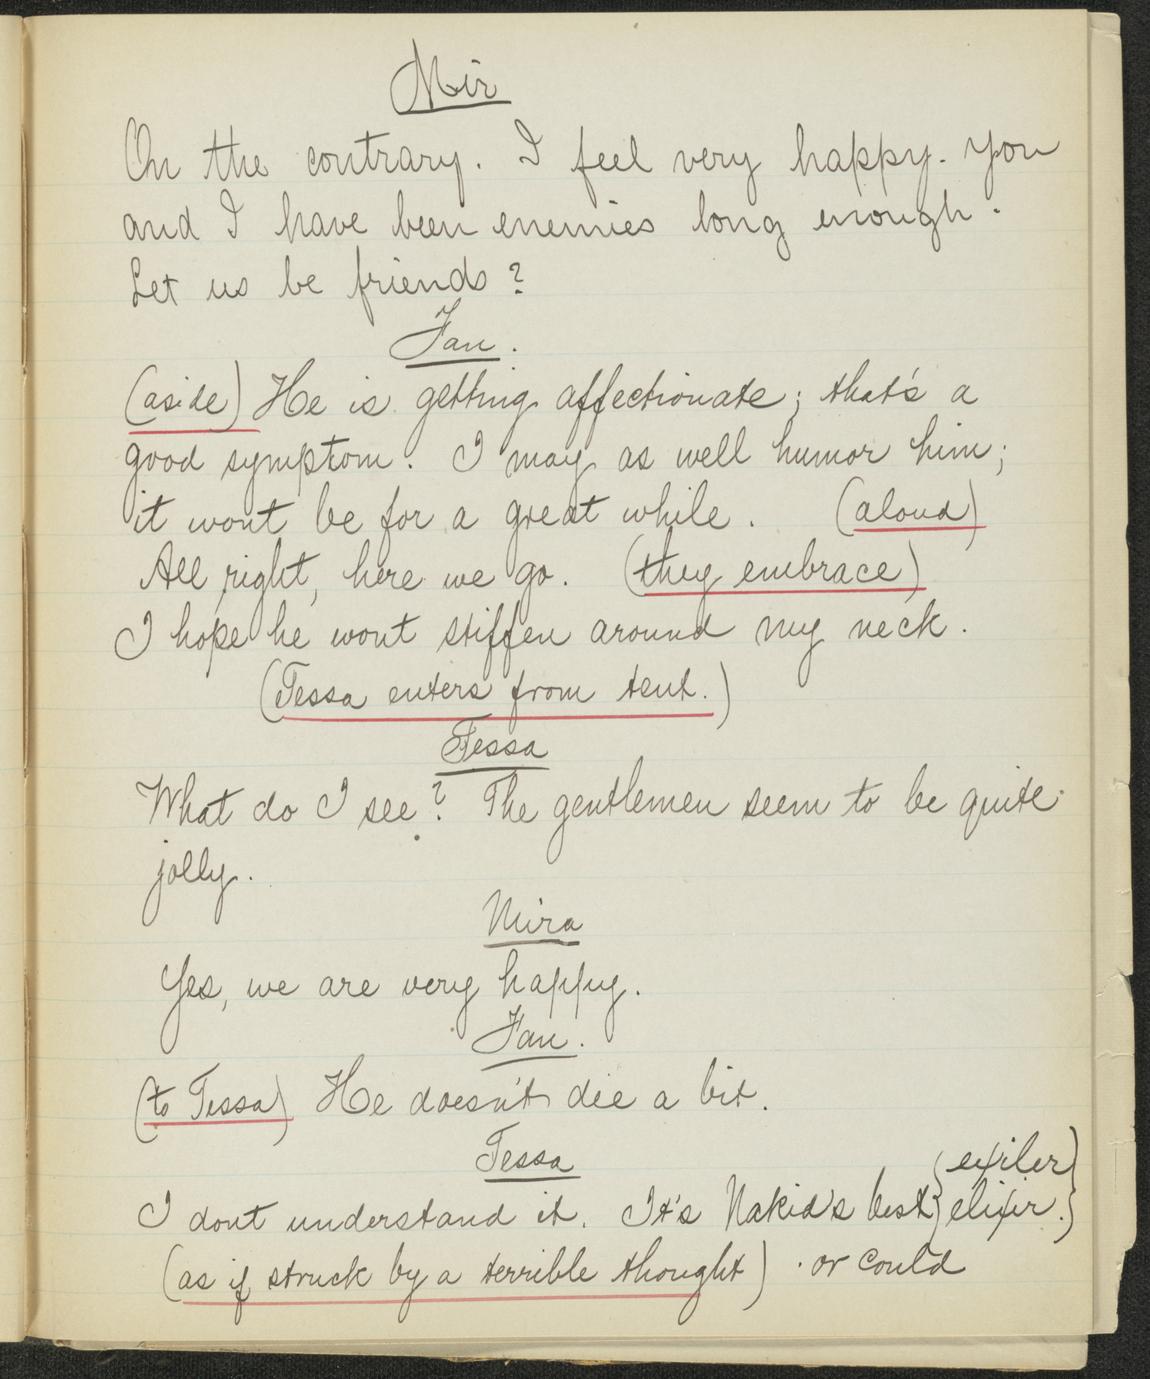 Mir
On the contrary. I feel very happy. You
and I have been enemies long enough.
Let us be friends?
Fan.
(aside) He is getting affectionate; that's a
good symptom. I may as well humor him;
it wont be for a great while. (aloud)
All right, here we go. (they embrace)
I hope he wont stiffen around my neck.
(Tessa enters from tent.)
Tessa
What do I see? The gentlemen seem to be quite
jolly.
Mira
Yes, we are very happy.
Fan.
(to Tessa) He doesn't die a bit.
Tessa
{exiler}
I dont understand it. It's Nakid's best {elixir.}
(as if struck by a terrible thought) . or could